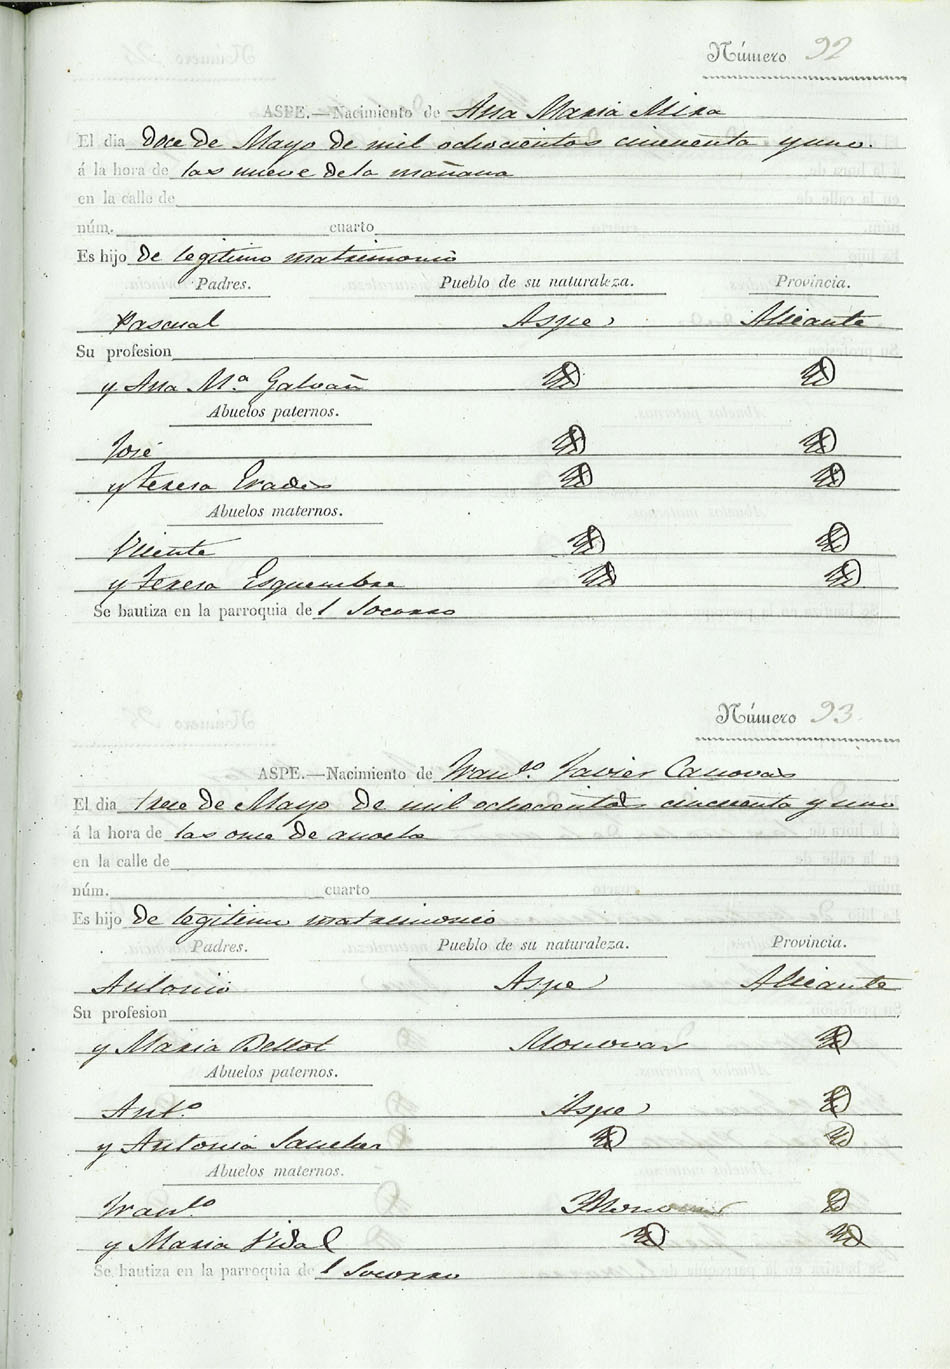 Número 92
ASPE.—Nacimiento de Ana Maria Mira
El dia doce de Mayo de mil ochocientos cincuenta y uno.
á la hora de las nueve de la mañana
en la calle de
núm. cuarto
Es hijo de legitimo matrimonio
Padres. Pueblo de su naturaleza. Provincia.
Pascual Aspe Alicante
Su profesion
y Ana Mª Galvañ
Abuelos paternos.
José
y Teresa Erades
Abuelos maternos.
Vicente
y Teresa Esquembre
Se bautiza en la parroquia de l Socorro
Número 93
ASPE.—Nacimiento de Franco. Javier Canovas
El dia trece de Mayo de mil ochocientos cincuenta y uno
á la hora de las once de anoche
en la calle de
núm. cuarto
Es hijo de legitimo matrimonio
Padres. Pueblo de su naturaleza. Provincia.
Antonio Aspe Alicante
Su profesion
y Maria Bellot Monovar
Abuelos paternos.
Anto. Aspe
y Antonia Sanchez
Abuelos maternos.
Franco. Monovar
y Maria Vidal
Se bautiza en la parroquia de l Socorro